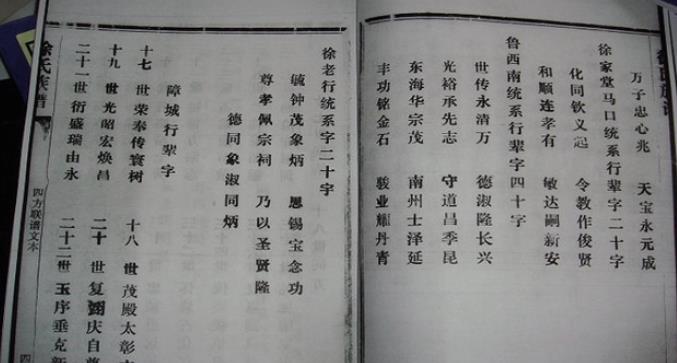 万子忠心兆　天宝永元成
徐家堂马口统系行辈字二十字
化同钦义起　令教作俊贤
和顺连孝有　敏达嗣新安
鲁西南统系行辈字四十字
世传永清万　德淑隆长兴
光裕承先志　守道昌季昆
东海华宗茂　南州士泽延
丰功铭金石　骏业耀丹青
徐老行统系字二十字
毓钟茂象炳　恩锡宝念功
尊孝佩宗祠　乃以圣贤隆
德同象淑同炳
障城行辈字
十七世荣奉传寰树　十八世茂殿太彰
十九世光昭宏焕昌　二十世复 庆自
二十一世衍盛瑞由永　二十二世玉序垂克新
徐氏族谱
四方联谱文本